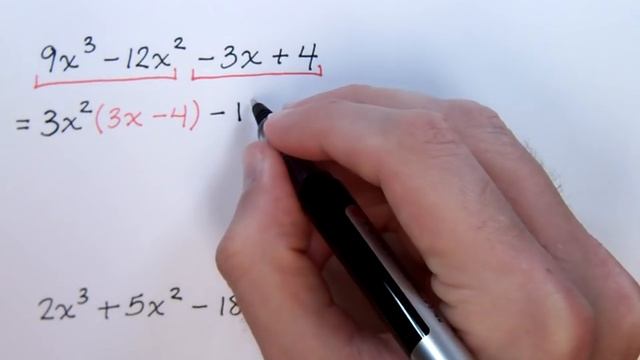 9x³ - 12x² - 3x + 4
= 3x²(3x - 4) - 1
2x³ + 5x² - 18